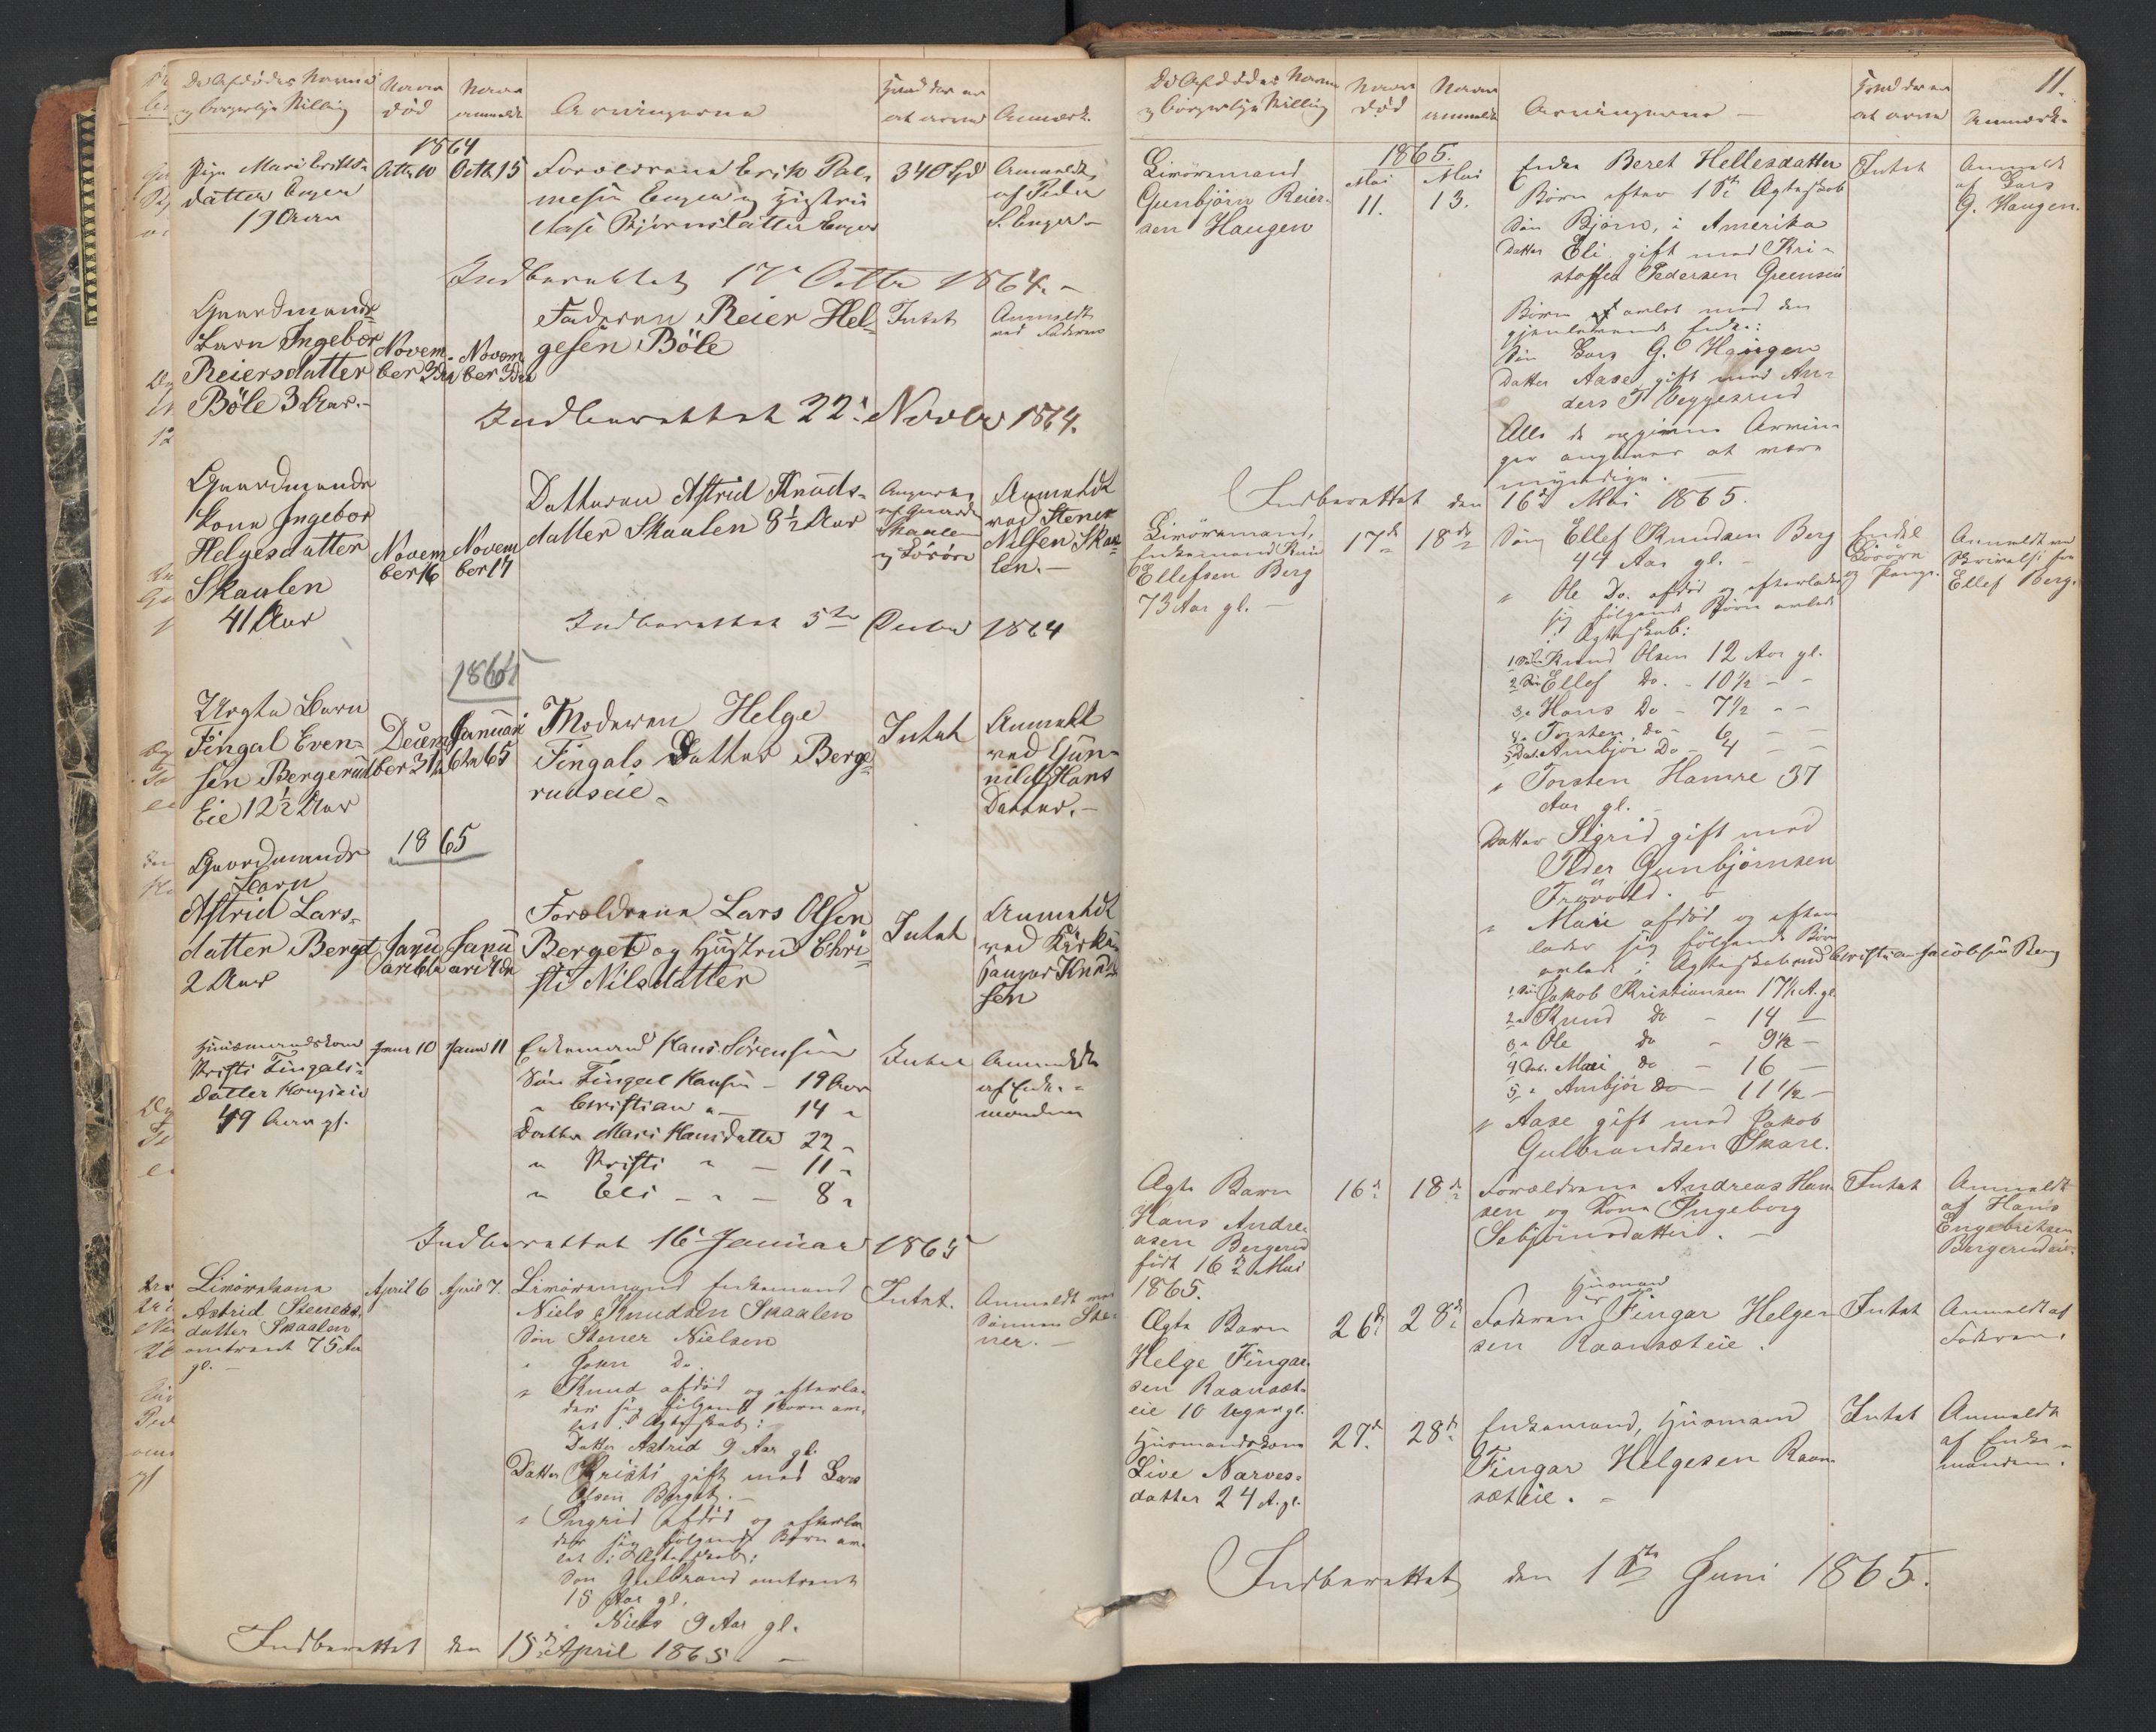 De Afdødes Navne
og borgerlige Stilling
Naar
død
Naar
anmeldt
Arvingerne
Hvad der er
at arve
Anmærk.
1864
Pige Mari Eriks-
datter Enger
19 Aar
Octb 10
Octb 15
Forældrene Erik Pal-
mesen Enger og Hustru
Aase Bjørnsdatter Enger
340 Spd
Anmeldt
af Peder
S. Enger
Indberettet 17de Octbr 1864.
Gaardmands
Barn Ingebor
Reiersdatter
Böle 3 Aar.
Novem-
ber 2den
Novem
ber 3die
Faderen Reier Hel-
gesen Böle
Intet
Anmeldt
ved Faderen
Indberettet 22de Novbr 1864.
Gaardmands
Kone Ingebor
Helgesdatter
Skaalen
41 Aar
Novem
ber 16
Novem
ber 17
Datteren Astrid Knuds-
datter Skaalen 8½ Aar
Angives
af Gaarden
Skaalen
og Lösöre
Anmeldt
ved Stener
Nilsen Skaa-
len.
Indberettet 3de Decbr 1864
1865
Uægte Barn
Fingal Even-
sen Bergerud
Eie 12½ Aar
Decem
ber 31te
Januari
6te 65
Moderen Helge
Fingals Datter Berge-
rudseie
Intet
Anmeldt
ved Gun-
nild Hans
Datter.
1865
Gaardmands
Barn
Astrid Lars-
datter Berget
2 Aar
Janu
ari 6te
Janu
ari 7de
Forældrene Lars Olsen
Berget og Hustru Chri-
sti Nilsdatter
Intet
Anmeldt
ved Kirke-
sanger Knud-
sen
Huusmandskone
Kristi Fingals-
datter
49 Aar gl.
Janu 10
Janu 11
Enkemand Hans Sörensen
Sön Fingal Hansen - 19 Aar
" Christian " - 14 "
Datter Mari Hansdatter 22 "
" Kristi " - 11 "
" Eli - " - 8 "
Intet
Anmeldt
af Enke-
manden
Indberettet 16de Januar 1865
Livörekone
Astrid Steners-
datter Skaalen
omtrent 75 Aar
gl. -
April 6
April 7.
Livöremand Enkemand
Niels Knudsen Skaalen
Sön Stener Nielsen
" John Do.
" Knud afdöd og efterla-
der sig fölgende Börn av-
let i Ægteskab:
Datter Astrid 9 Aar gl.
Datter Kristi gift med Lars
Olsen Berget. -
" Ingrid afdöd og efterla-
der sig fölgende Börn av-
let i Ægteskab:
Sön Gulbrand omtrent
15 Aar gl.
" Niels 9 Aar gl.
Intet.
Anmeldt ved
Sönnen Ste-
ner. -
Indberettet den 15de April 1865. -
11.
De Afdødes Navne
og borgerlige Stilling
Naar
død
Naar
anmeldt
Arvingerne -
Hvad der er
at arve
Anmærk.
1865.
Livöremand
Gunbjörn Reier-
sen Haugen
Mai
11.
Mai
13.
Enke Beret Hellesdatter
Börn efter 1ste Ægteskab
Sön Björn, i Amerika
Datter Eli gift med Kri-
stoffer Pedersen Greensen
Börn avlet med den
gjenlevende Enke:
Sön Lars G. Haugen
Datter Aase gift med An-
ders T. Veggesrud
Alle de opgivne Arvin-
ger angives at være
myndige. -
Intet
Anmeldt
af Lars
G. Haugen.
Indberettet den 16de Mai 1865.
Livöremand,
Enkemand Knud
Ellefsen Berg
73 Aar gl. -
17de
18de
Sön Ellef Knudsen Berg
44 Aar gl. -
" Ole Do. afdöd og efterlader
sig fölgende Börn avlede
i Ægteskab:
1 Sön Knud Olsen 12 Aar gl.
2 Sön Ellef Do. - 10½ - -
3 " Hans Do - 7½ - -
4 " Torsten Do - 6 - -
5 Dat. Ambjör Do - 4 - -
" Torsten Hamre 37
Aar gl. -
Datter Sigrid gift med
Peder Gunbjörnsen
Trövold. -
" Mari afdöd og efter-
lader sig fölgende Börn
avlede i Ægteskab med Christian Jacobsen Berg
1 Sön Jakob Kristiansen 17½ A. gl.
2 " Knud Do - 14 -
3 " Ole Do - 9½ -
4 Dat. Mari Do - 16 -
5 " Ambjör Do - 11½ -
" Aase gift med Jakob
Gulbrandsen Skare.
Endel
Lösöre
og Penge.
Anmeldt ved
Skrivelse fra
Ellef Berg.
Ægte Barn
Hans Andre-
asen Bergerud
födt 16de Mai
1865.
16de
18de
Forældrene Andreas Han-
sen og Kone Ingeborg
Sebjörnsdatter. -
Intet
Anmeldt
af Hans
Engebriktsen
Bergerudeie.
Ægte Barn
Helge Fingar-
sen Raansæt-
eie 10 Uger gl.
26de
28de
Husmand
Faderen Fingar Helge-
sen Raansæteie.
Intet
Anmeldt af
Faderen.
Husmandskone
Live Narves-
datter 24 A. gl.
27de
28de
Enkemand, Husmand
Fingar Helgesen Raan-
sæteie. -
Intet
Anmeldt
af Enke-
manden.
Indberettet den 1ste Juni 1865.